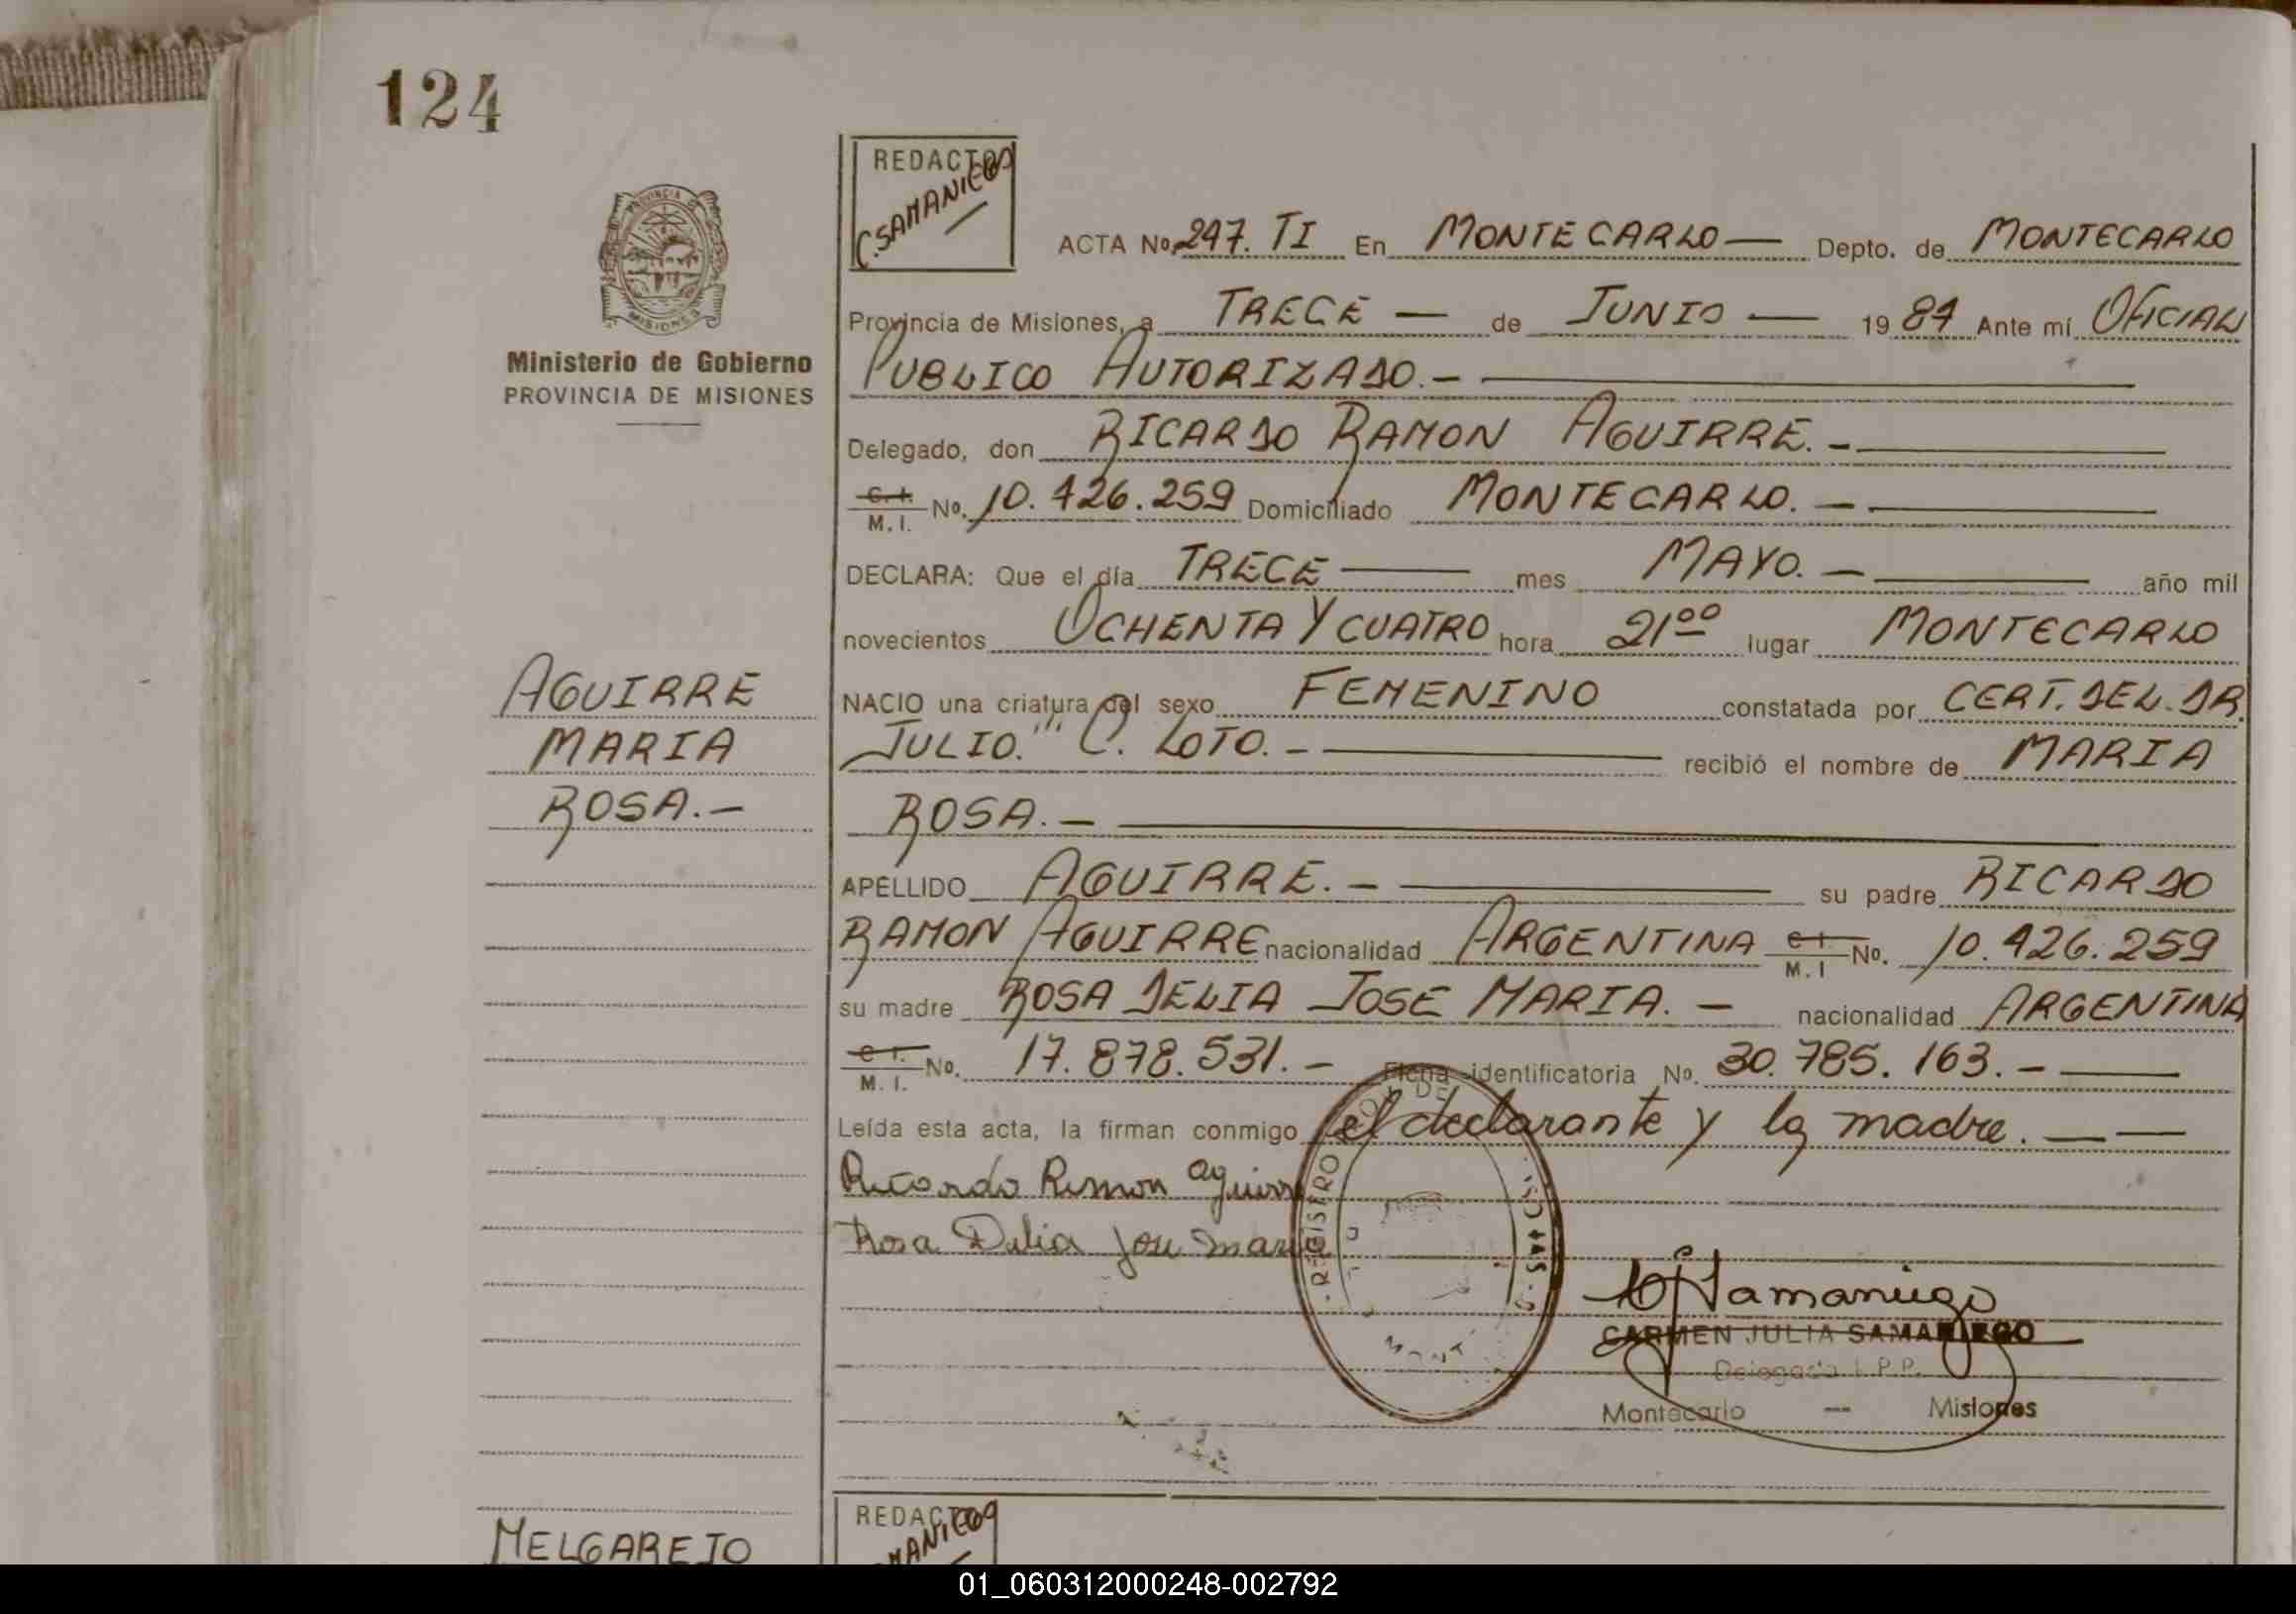 124
REDACTOR
C.SAMANIEGO
PROVINCIA DE
MISIONES
Ministerio de Gobierno
PROVINCIA DE MISIONES
ACTA No. 247. TI En MONTECARLO — Depto. de MONTECARLO
Provincia de Misiones, a TRECE — de JUNIO — 19 84 Ante mí OFICIAL
PUBLICO AUTORIZADO.-
Delegado, don RICARDO RAMON AGUIRRE.-
C. I. M. I. No. 10.426.259 Domiciliado MONTECARLO.-
DECLARA: Que el día TRECE — mes MAYO.- año mil
novecientos OCHENTA Y CUATRO hora 21 00 lugar MONTECARLO
AGUIRRE
MARIA
ROSA.-
NACIO una criatura del sexo FEMENINO constatada por CERT. DEL. DR.
JULIO." C. LOTO.- recibió el nombre de MARIA
ROSA.-
APELLIDO AGUIRRE.- su padre RICARDO
RAMON AGUIRRE nacionalidad ARGENTINA C I. M. I No. 10.426.259
su madre ROSA DELIA JOSE MARIA.- nacionalidad ARGENTINA
C I. M. I. No. 17.878.531.- Ficha identificatoria No. 30.785.163.-
Leída esta acta, la firman conmigo el declarante y la madre.
Ricardo Ramon Aguirre
Rosa Delia Jose Maria
REGISTRO DE
CJSamaniego
CARMEN JULIA SAMANIEGO
Delegada I. P.P.
Montecarlo — Misiones
REDACTOR
MELGAREJO
01_060312000248-002792